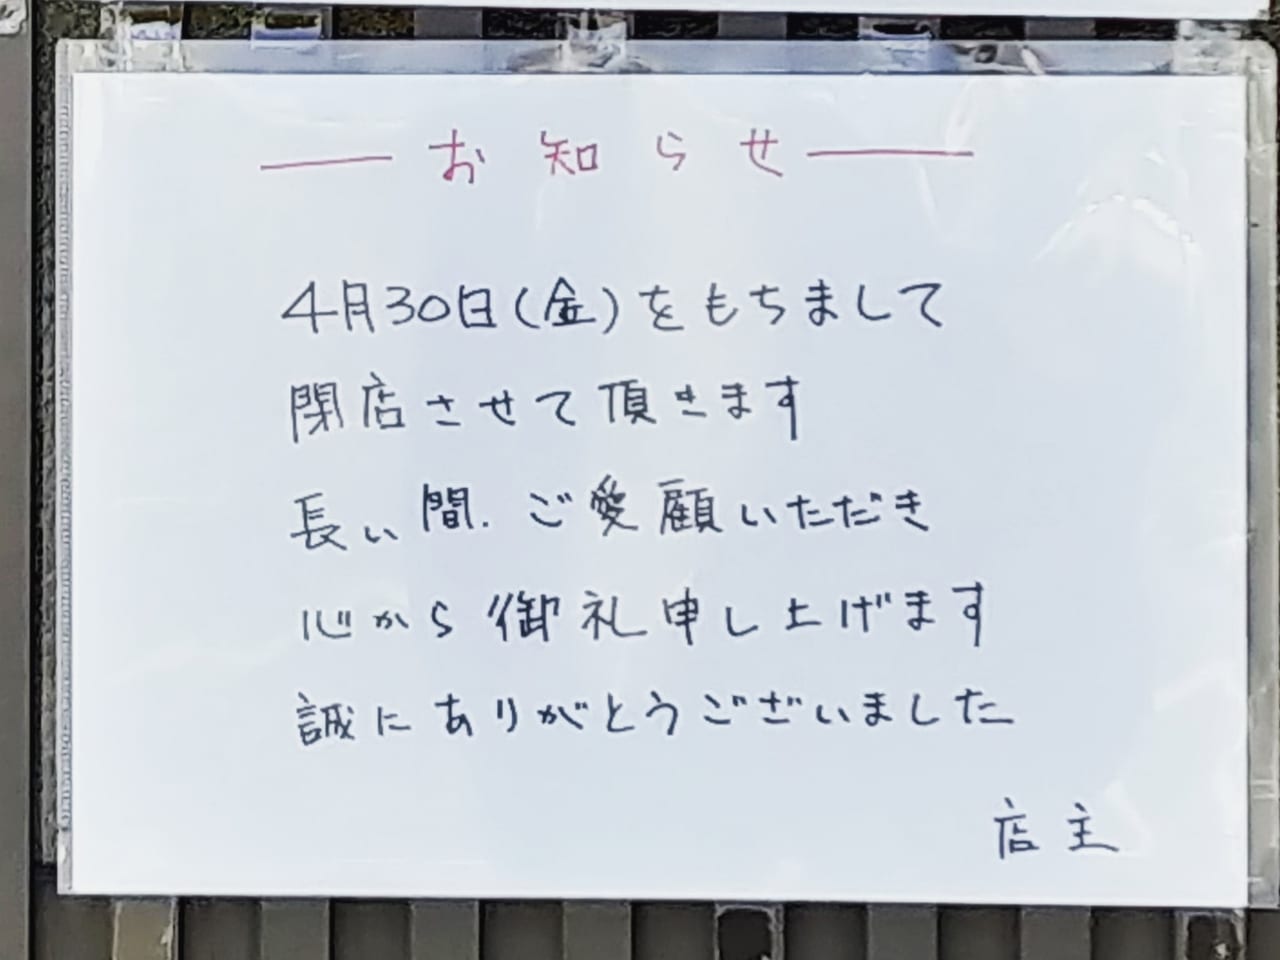 お知らせ
4月30日(金)をもちまして
閉店させて頂きます
長い間、ご愛顧いただき
心から御礼申し上げます
誠にありがとうございました
店主